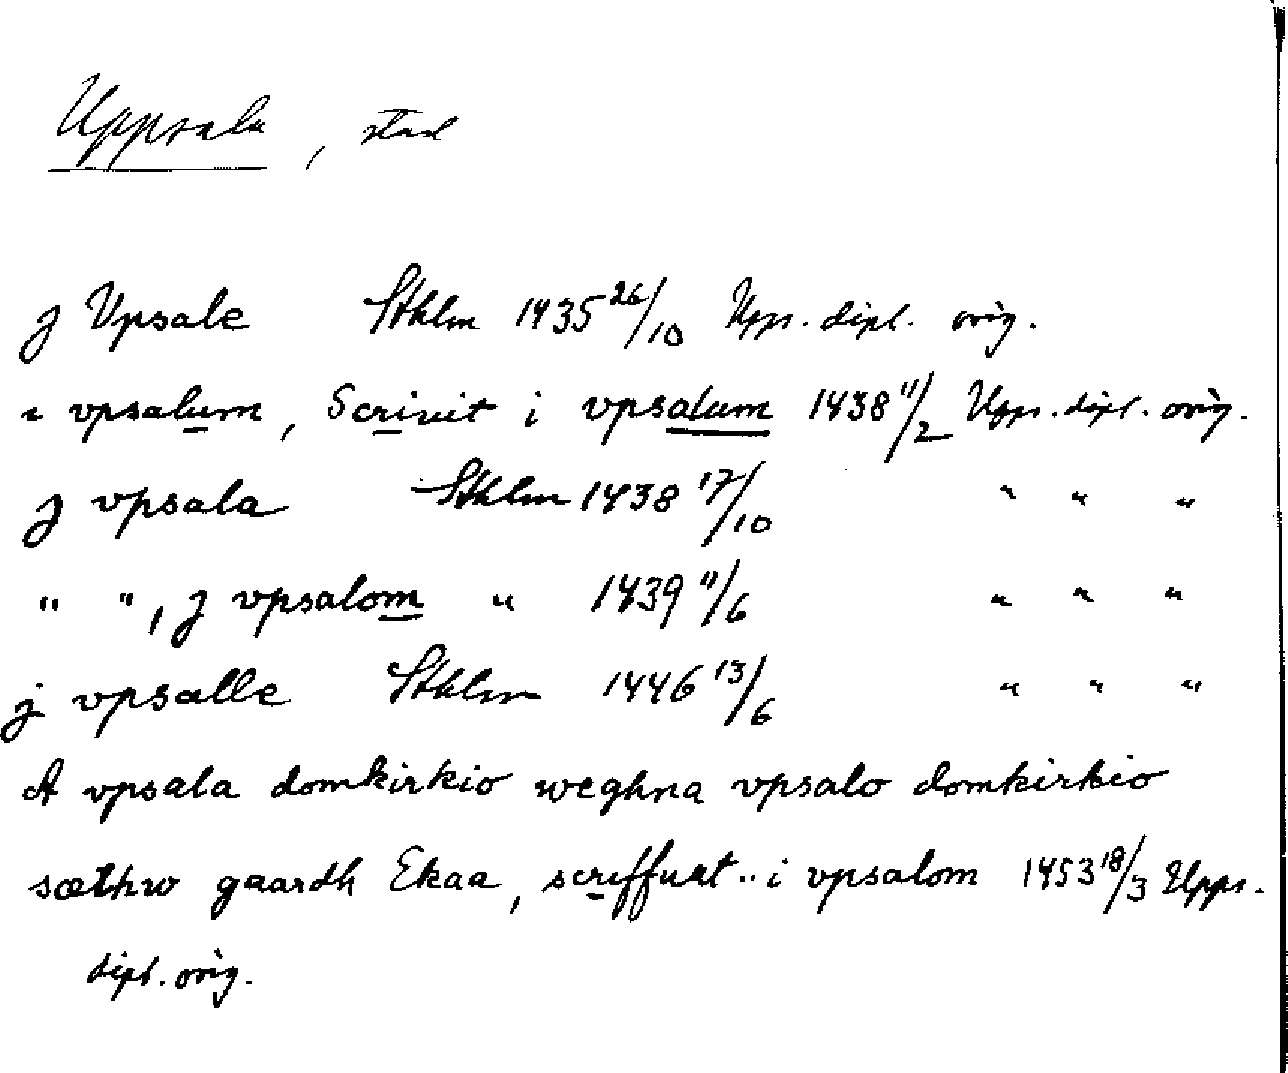 Uppsala, stad
j Upsale Sthlm 1435 26/10 Upps. dipl. orig.
i vpsalum, Scrivit i vpsalum 1438 11/2 Upps. dipl. orig.
j vpsala Sthlm 1438 17/10 " " "
" ", j vpsalom " 1439 11/6 " " "
j vpsalle Sthlm 1446 13/6 " " "
A vpsala domkirkio weghna vpsalo domkirkio
sæthw gaardh Ekaa, screffuat .. i vpsalom 1453 18/3 Upps.
dipl. orig.